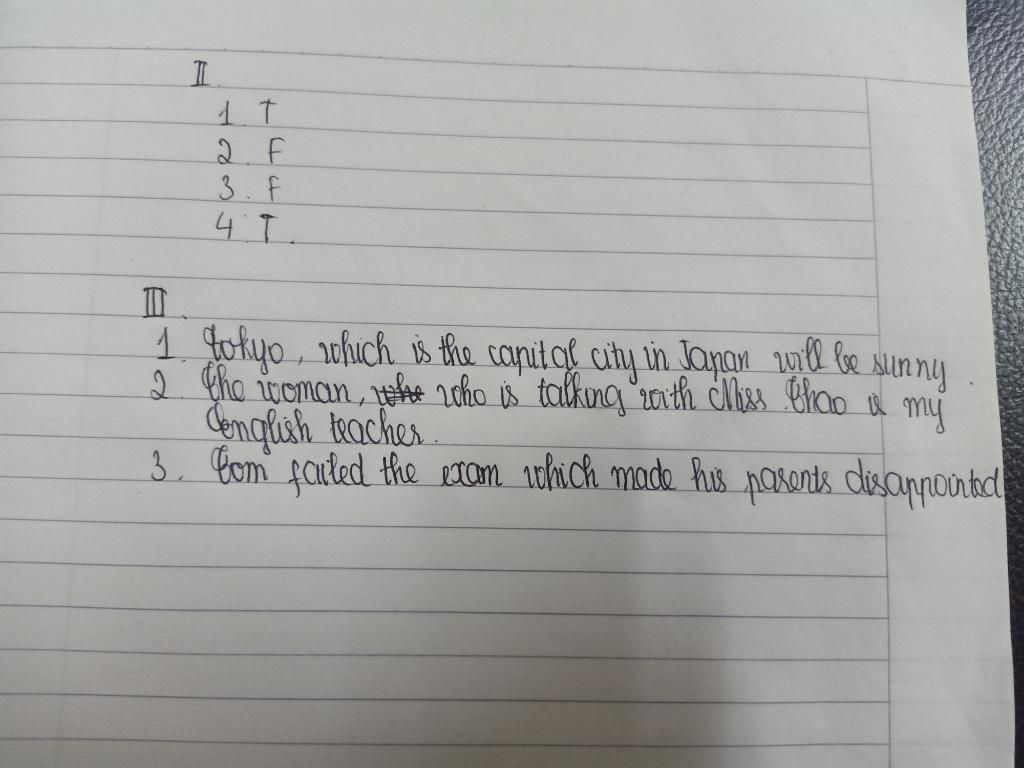 II.
1 T
2. F
3. F
4 T.
III.
1. Tokyo, which is the capital city in Japan will be sunny.
2 The woman, who is talking with Miss Thao is my
English teacher.
3. Tom failed the exam which made his parents disappointed